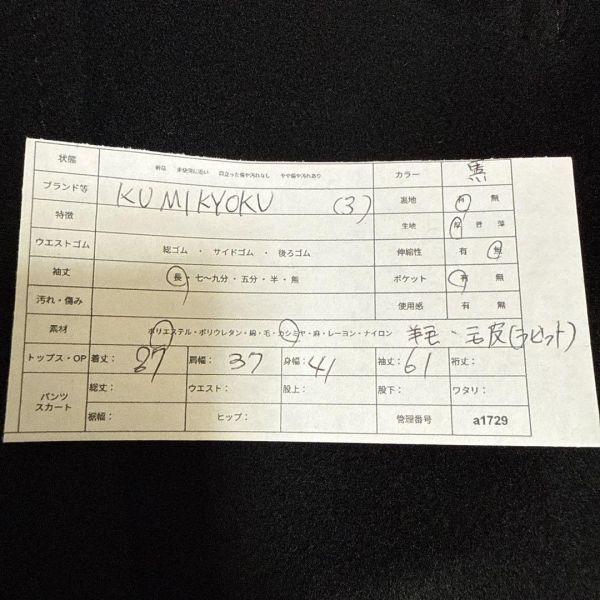 状態 新品 未使用に近い 目立った傷や汚れなし やや傷や汚れあり カラー 黒
ブランド等 KUMIKYOKU (3) 裏地 有 無
特徴 生地 厚 普 薄
ウエストゴム 総ゴム・サイドゴム・後ろゴム 伸縮性 有 無
袖丈 長・七〜九分・五分・半・無 ポケット 有 無
汚れ・傷み 使用感 有 無
素材 ポリエステル・ポリウレタン・綿・毛・カシミヤ・麻・レーヨン・ナイロン 羊毛・毛皮(ラビット)
トップス・OP 着丈: 87 肩幅: 37 身幅: 41 袖丈: 61 裄丈:
パンツ スカート 総丈: ウエスト: 股上: 股下: ワタリ:
裾幅: ヒップ: 管理番号 a1729